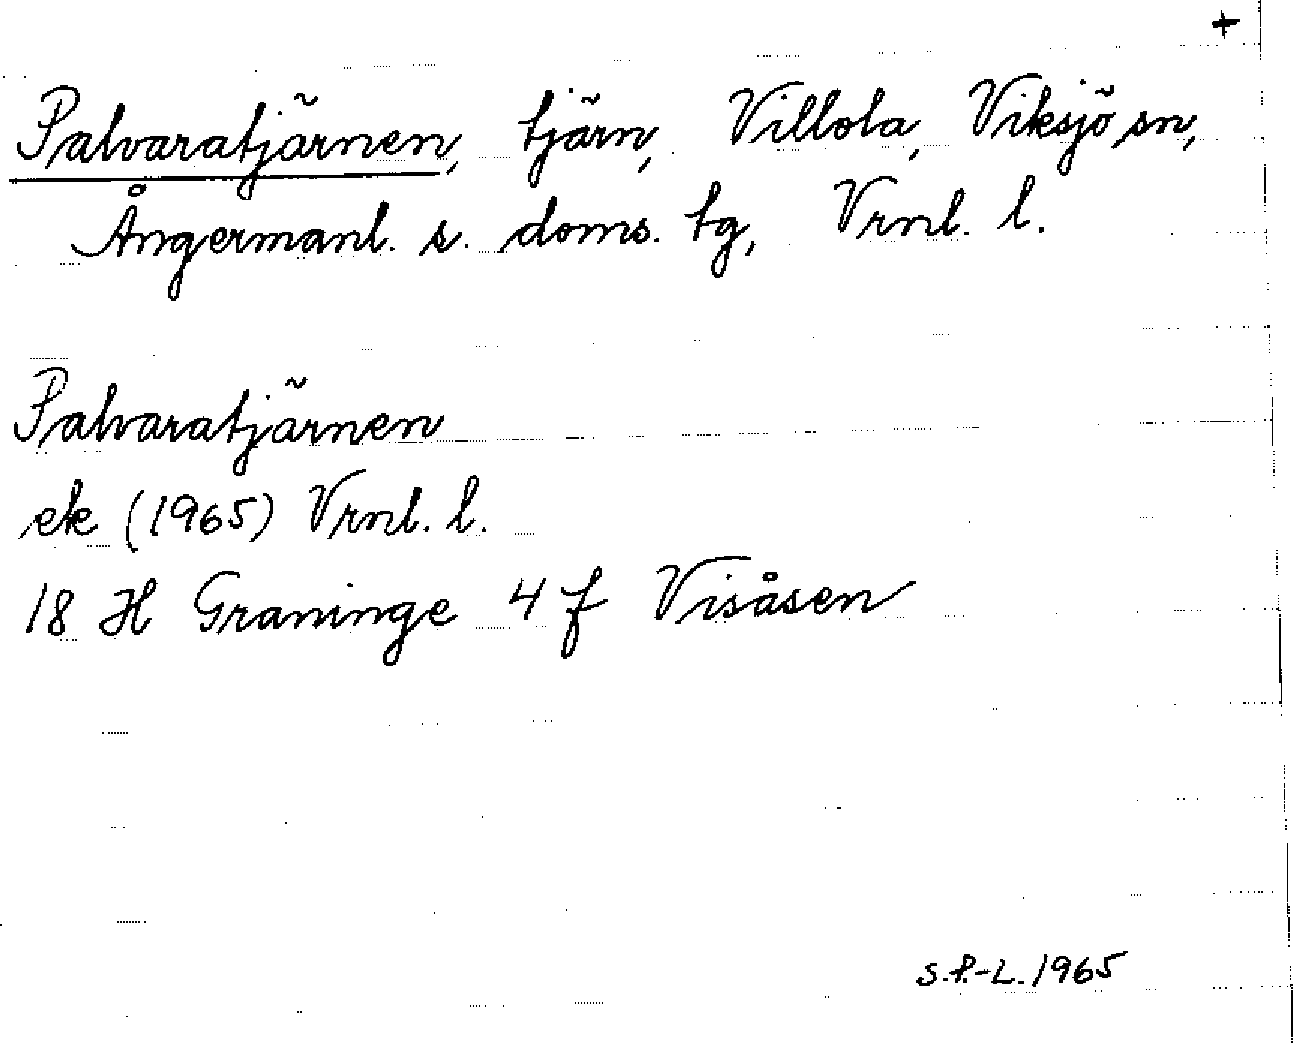 +
Palvaratjärnen, tjärn, Villola, Viksjö sn,
Ångermanl. s. doms. tg, Vrnl. l.
Palvaratjärnen
ek (1965) Vrnl. l.
18 H Graninge 4 f Visåsen
S.P.-L. 1965